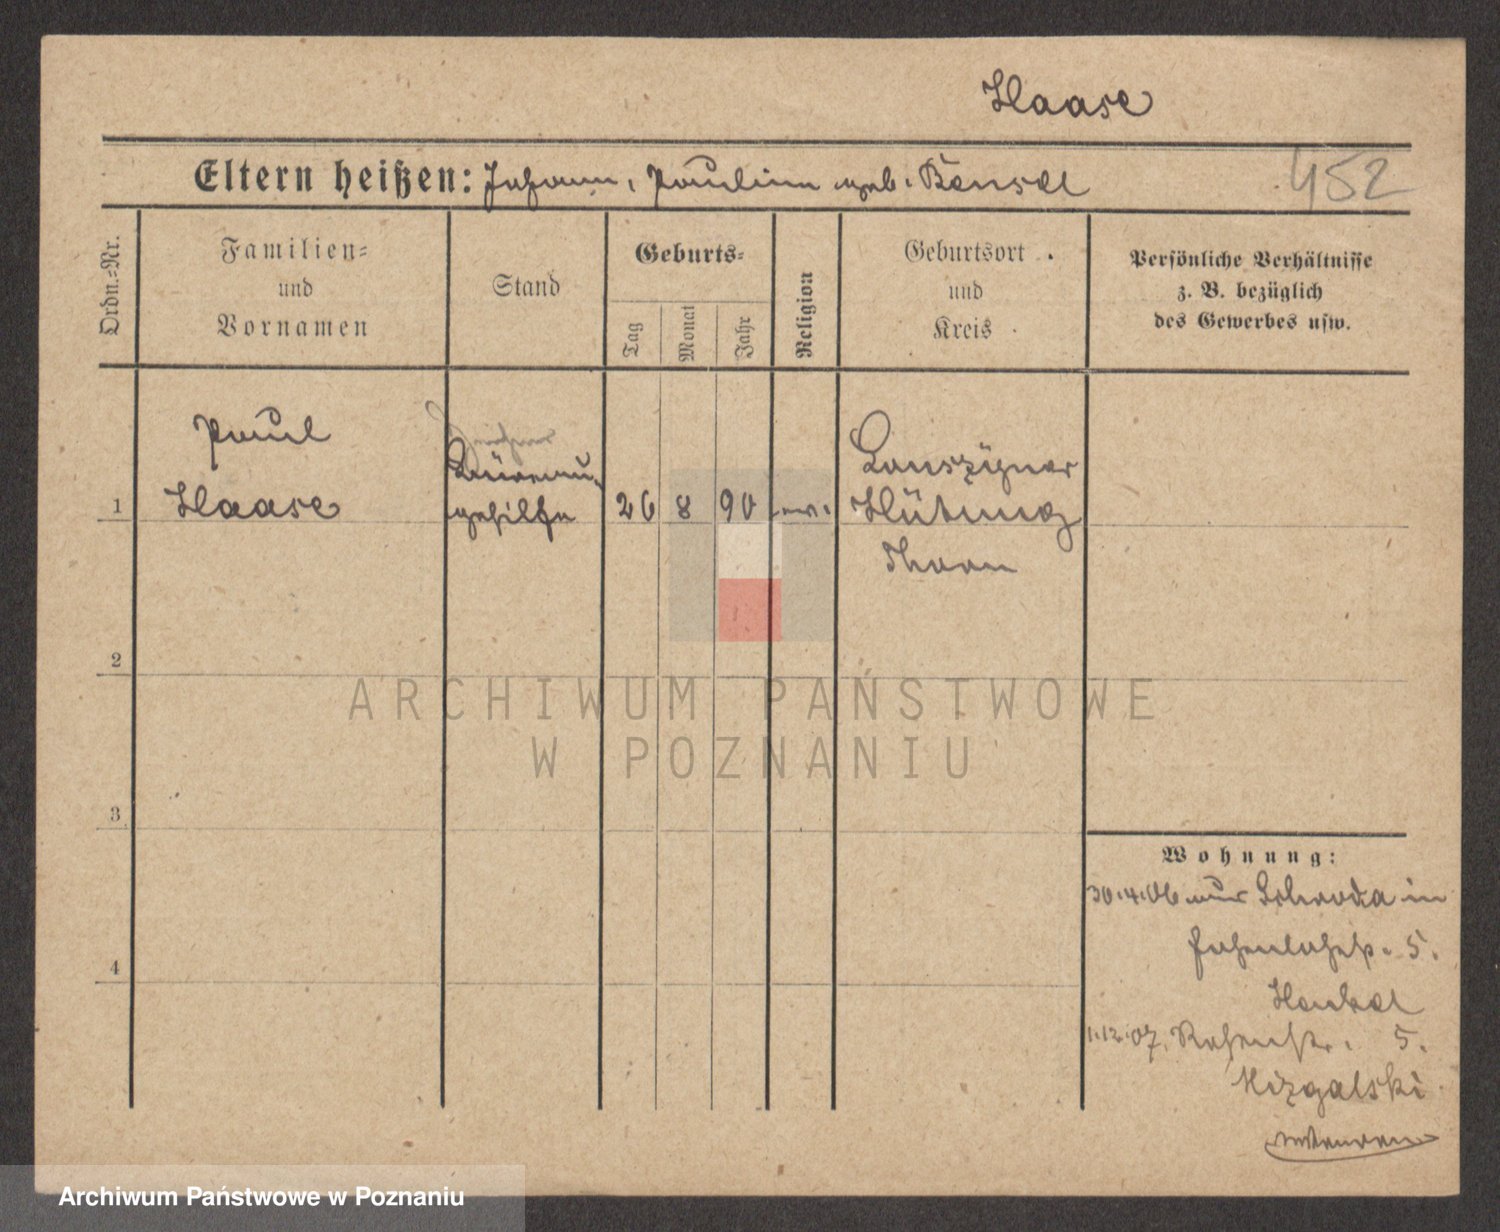 Haase
Eltern heißen: Johann, Pauline geb. Bensel
452
Ordn.-Nr.
Familien-
und
Vornamen
Stand
Geburts-
Tag
Monat
Jahr
Religion
Geburtsort
und
Kreis
Persönliche Verhältnisse
z. B. bezüglich
des Gewerbes usw.
Paul
Haase
gehilfe
1
26 8 90 ev.
Hütung
Thorn
2
3
4
Wohnung:
30.4.06 aus Schroda in
5.
Henkel
1.12.07. Rosenstr. 5.
Mizgalski
ARCHIWUM PAŃSTWOWE
W POZNANIU
Archiwum Państwowe w Poznaniu